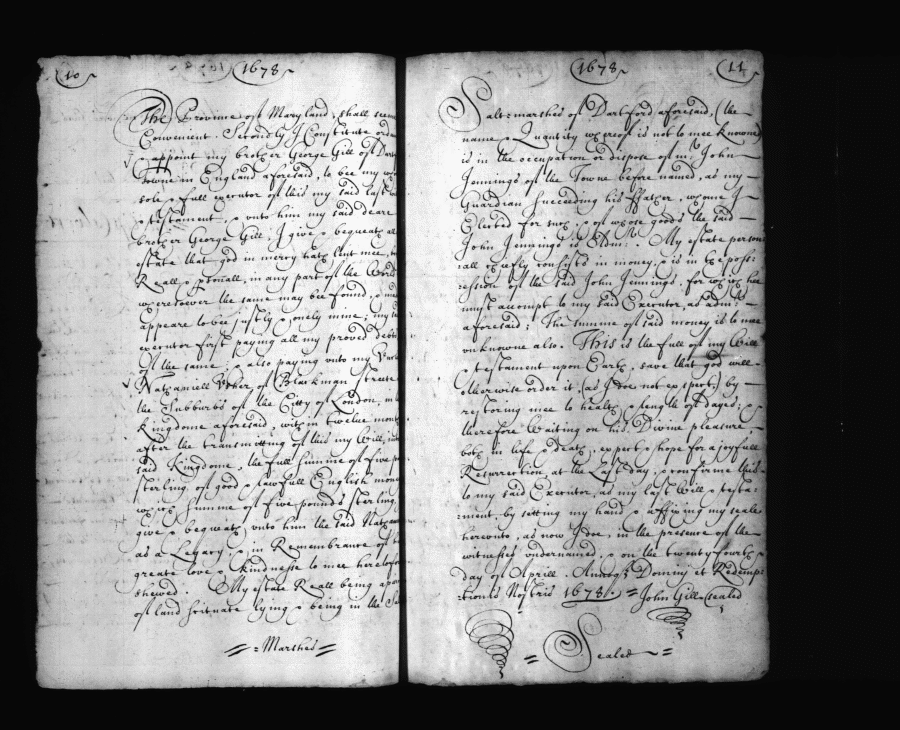 10
1678
The Province of Mary land, shall seem
Convenient. Secondly I Constitute orda
appoint my brother George Gill of Dart
Towne in England aforesaid, to bee my
sole & full executor of this my said last
& testament, & unto him my said deare
brother George Gill: I give & bequeath all
estate that god in mercy hath lent mee,
Reall & p'sonall, in any part of the World
wheresoever the same may bee found, &
appeare to bee justly & onely mine; my
executor first paying all my proved debts
of the same; & also paying unto my
Nathaniell of Blackman streete
the Subburbs of the Citty of London, in
Kingdome aforesaid, with in twelve mont
after the transmitting of this my Will, into
said Kingdome, the full summe of five po
sterling, of good & lawfull English mony
wch sd summe of five pounds sterling,
give & bequeath unto him the said Nathan
as a Legacy, & in Remembrance of
greate love & Kindnesse to mee heretofor
shewed. My estate Reall being a
of land scituate lying & being in the Sa
= Marshes =
1678
11
Salt=marshes of Dartford aforesaid, (the
name & Quantity whereof is not to mee knowne)
is in the occupation or dispose of mr John
Jennings of the Towne before named, as my
Guardian succeeding his Father, whome I
Elected for such, & of whose goods the said
John Jennings is Adm:. My estate person=
:all cheifly consists in money, & is in the poss:
:ession of the said John Jennings, for wch hee
must accompt to my said Executor, as adm:
aforesaid: The summe of said money is to mee
unknowne also. This is the full of my Will
& testament upon Earth, save that god will
otherwise order it, (as I doe not expect) by
restoring mee to health & length of dayes; &
therefore Waiting on his Divine pleasure,
both in life & death, expect & hope for a joyfull
Resurrection, at the Last day, & confirme this
to my said Executor, as my last Will & testa:
:ment, by setting my hand & affixing my seale
hereunto, as now I doe, in the presence of the
witnesses undernamed, & on the twenty fourth
day of Aprill. Annoq; Dominj et Redemp:
:tionis Nostris 1678. = John Gill (sealed
= Sealed =